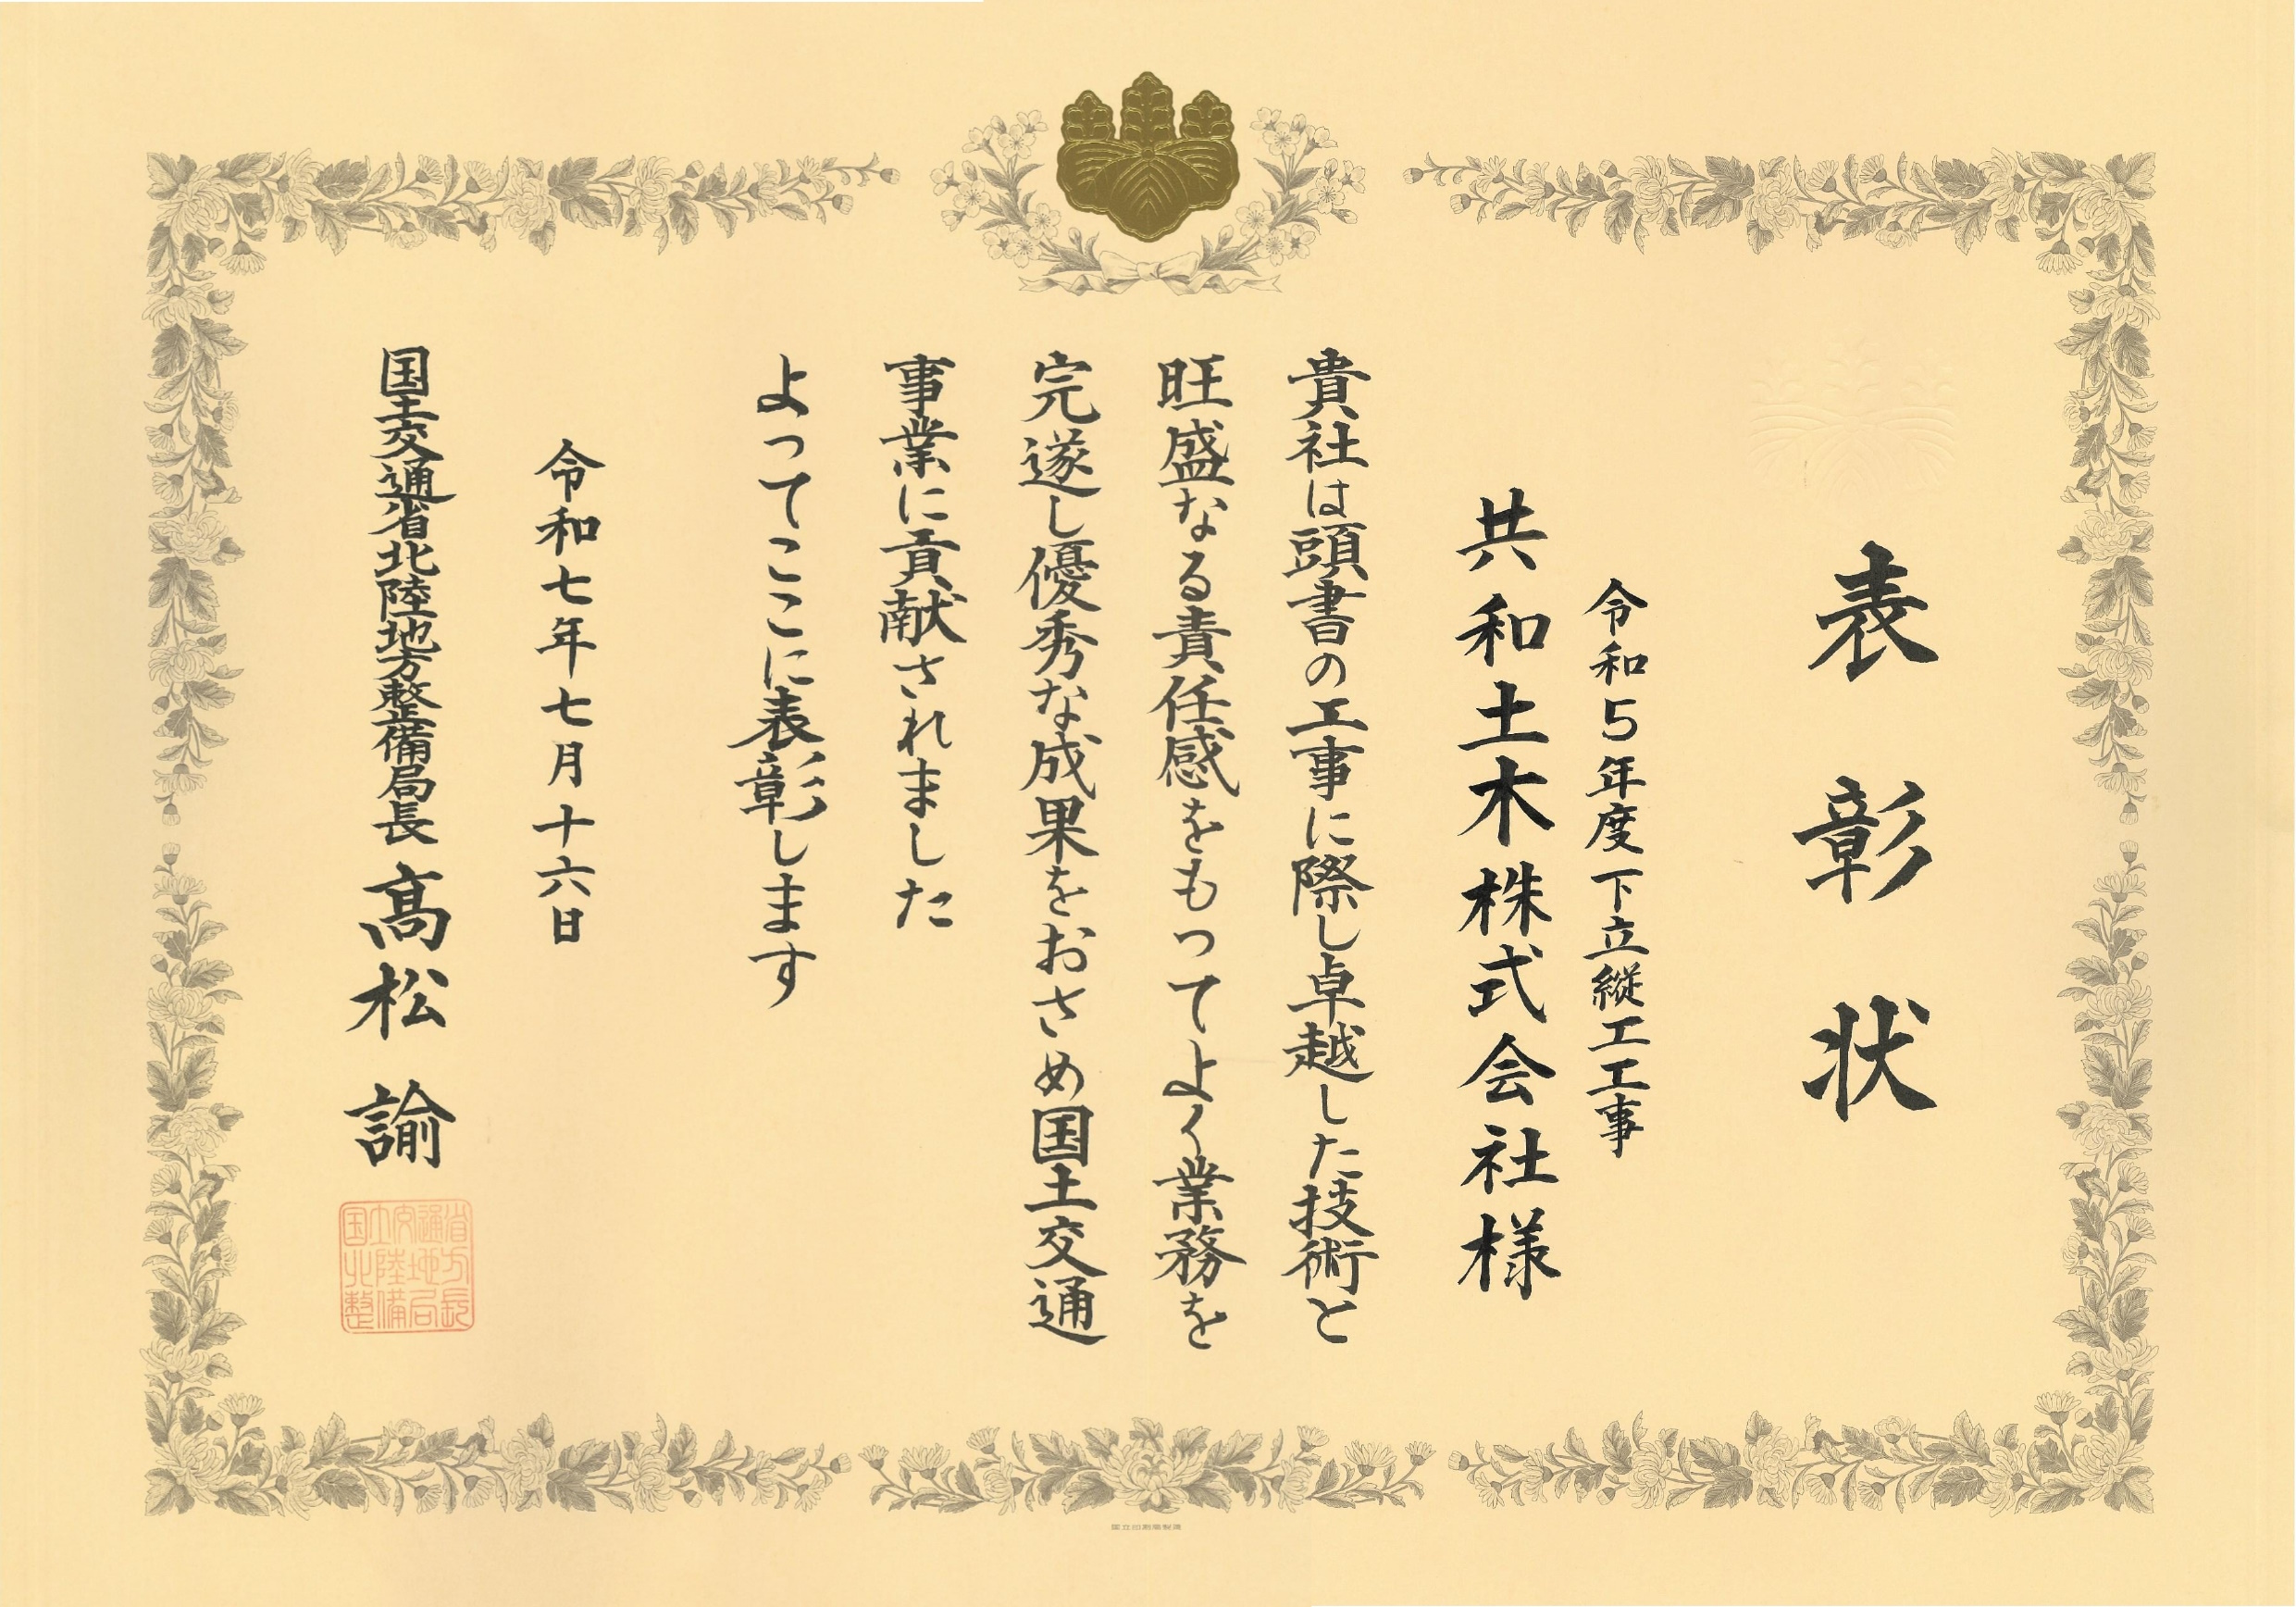 表彰状
令和5年度下立縦工工事
共和土木株式会社様
貴社は頭書の工事に際し卓越した技術と
旺盛なる責任感をもってよく業務を
完遂し優秀な成果をおさめ国土交通
事業に貢献されました
よってここに表彰します
令和七年七月十六日
国土交通省北陸地方整備局長 髙松 諭
国土交通省
北陸地方
整備局長
国立印刷局製造